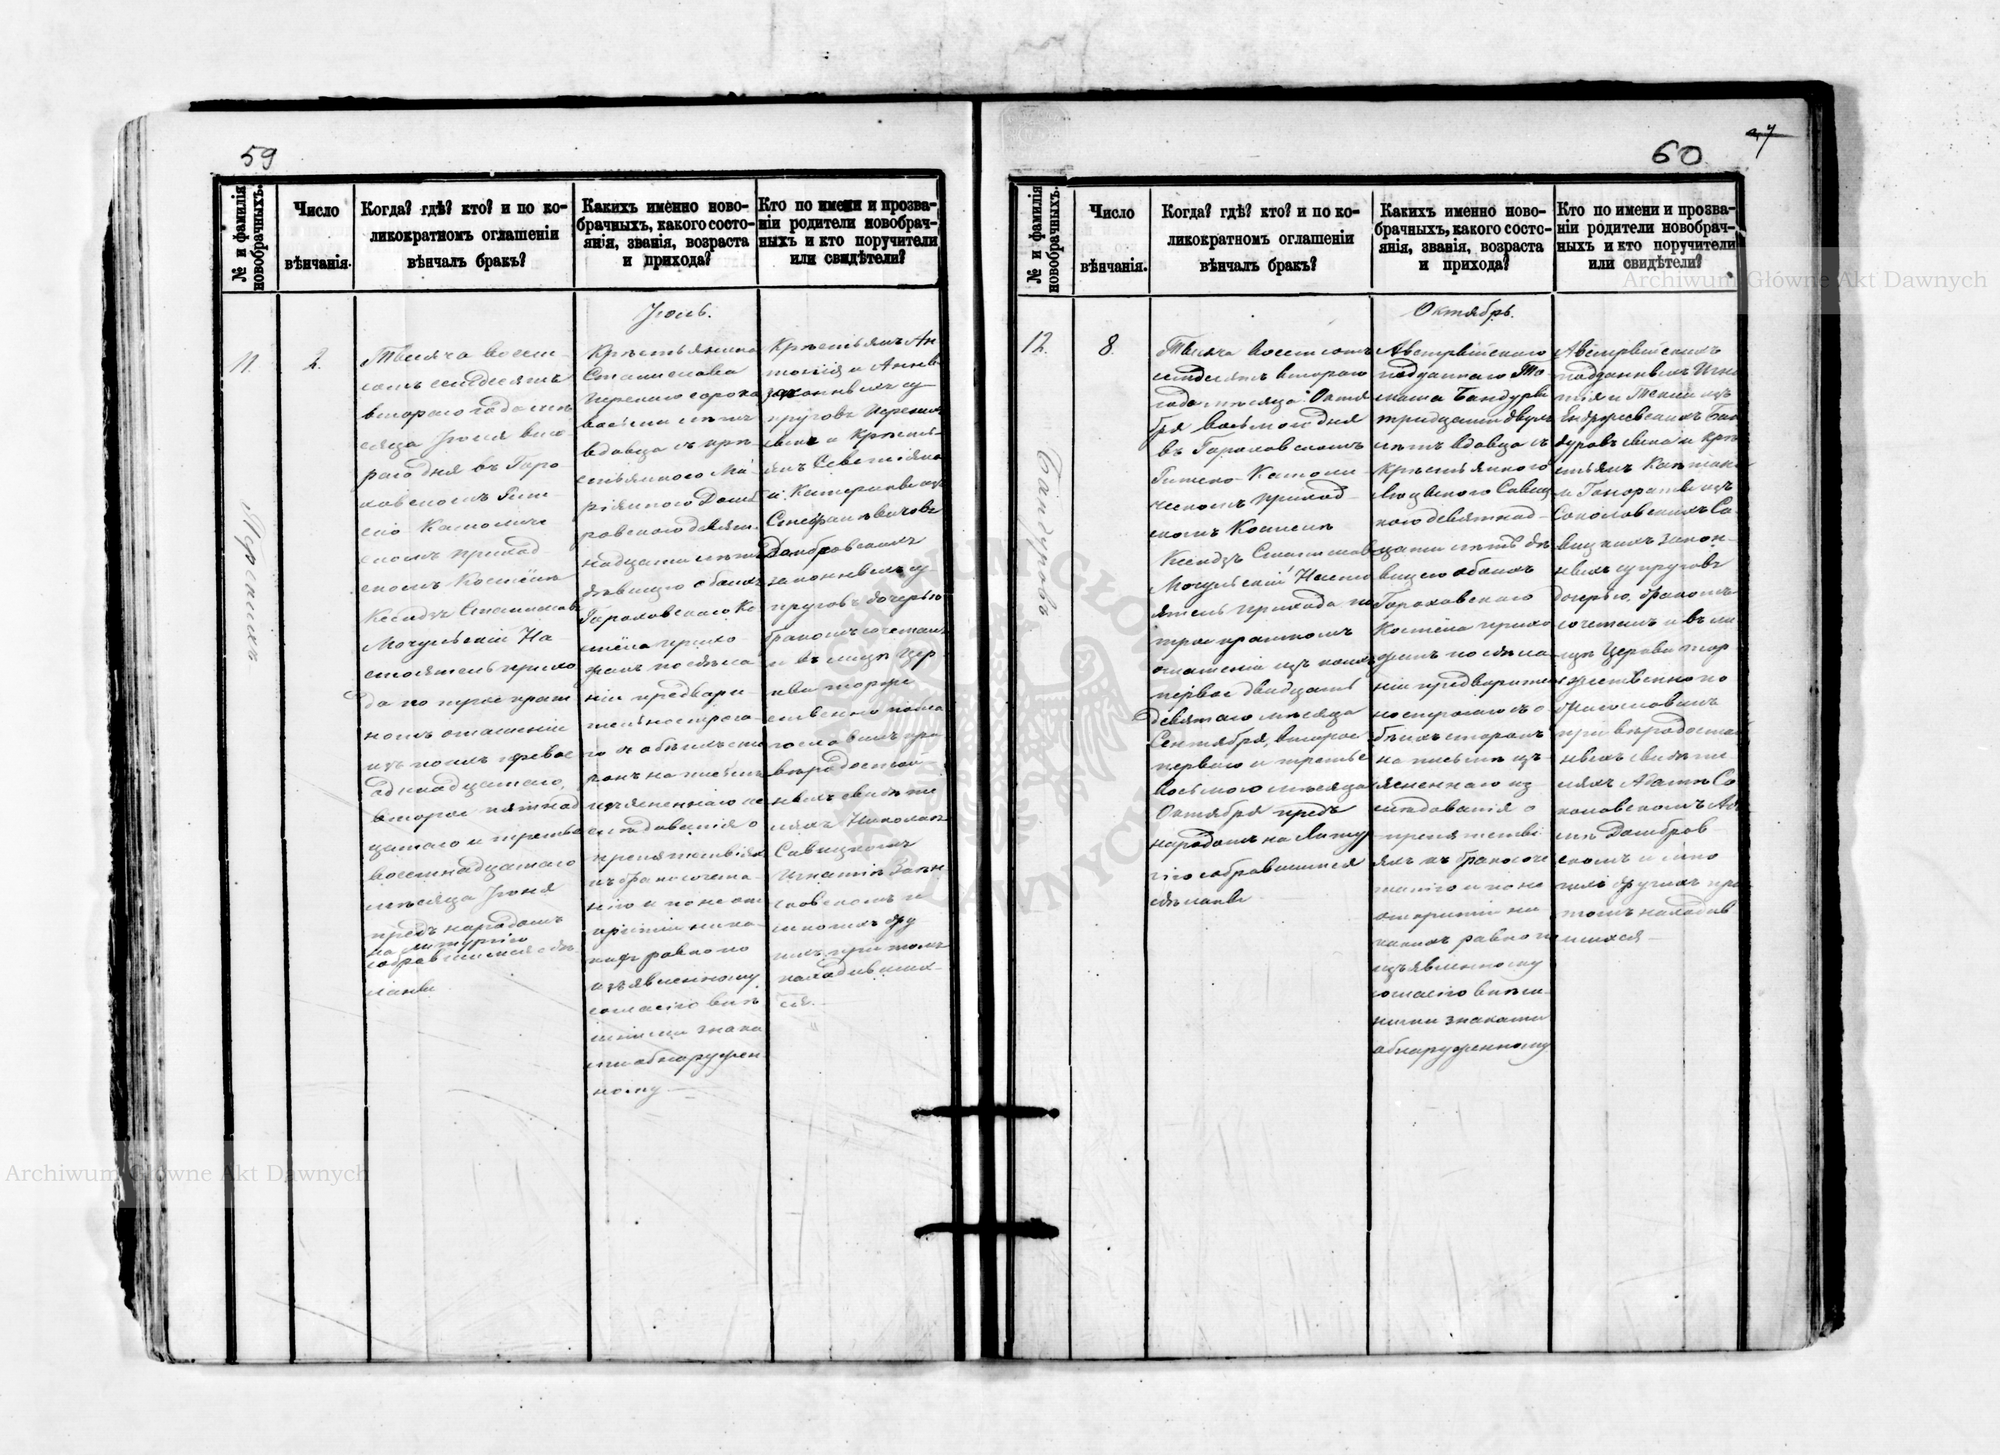 59
№ и фамилія новобрачныхъ.
Число вѣнчанія.
Когда? гдѣ? кто? и по ко-
ликократномъ оглашеніи
вѣнчалъ бракъ?
Какихъ именно ново-
брачныхъ, какого состо-
янія, званія, возраста
и прихода?
Кто по имени и прозва-
ніи родители новобрач-
ныхъ и кто поручители
или свидѣтели?
11.
2.
Тысяча восем-
сотъ семдесятъ
втораго года мѣ-
сяца Іюля вто-
раго дня въ Горо-
ховскомъ Рим-
ско Католиче
скомъ приход-
скомъ Костёлѣ
Ксендзъ Станиславъ
Мочульскій На-
стоятель прихо
да по троекрат
номъ оглашеніи
изъ коихъ первое
второе пятнад
цатаго и третье
восемнадцатаго
мѣсяца Іюня
предъ народомъ
на Литургію
собравшимся сдѣ-
ланы.
Іюль.
Крестьянина
Станислава
сорока
восьми лѣтъ
вдовца съ кре
стьянкою Ма-
ровскою девят-
надцати лѣтъ
дѣвицею обоихъ
Гороховскаго Ко
стёла прихо-
жанъ по сдѣла
ніи предвари
тельно строга-
го съ обѣихъ сто
ронъ на письмѣ
изъясненнаго из
слѣдованія о
препятствіяхъ
къ бракосочета-
нію и по неот
крытіи ника-
кихъ равно по
изъявленному
согласію внѣ
шними знака
ми обнаружен
ному.
Крестьянъ Ан
тонія и Анны
законныхъ су-
пруговъ
сына и Крестья
янъ Севастіяна
и Катерины изъ
Стефановичовъ
Домбровскихъ
законныхъ су
пруговъ дочерью
бракомъ сочеталъ
и въ лицѣ Цер
кви торже
ственно благо
гословилъ при
вѣродостой-
ныхъ свидѣте
ляхъ Николаѣ
Савицкомъ
Игнатіѣ
и
многихъ дру
гихъ при томъ
находивших-
ся.
60
№ и фамилія новобрачныхъ.
Число вѣнчанія.
Когда? гдѣ? кто? и по ко-
ликократномъ оглашеніи
вѣнчалъ бракъ?
Какихъ именно ново-
брачныхъ, какого состо-
янія, званія, возраста
и прихода?
Кто по имени и прозва-
ніи родители новобрач-
ныхъ и кто поручители
или свидѣтели?
12.
Бандуровъ
8.
Тысяча восемсотъ
семдесятъ втораго
года мѣсяца Октя
бря восьмого дня
въ Гороховскомъ
Римско-Католи
ческомъ приход-
скомъ Костёлѣ
Ксендзъ Станиславъ
Мочульскій Насто
ятель прихода по
троекратномъ
оглашеніи изъ коихъ
первое двадцать
девятаго мѣсяца
Сентября, второе
перваго и третье
восьмого мѣсяца
Октября предъ
народомъ на Литур
гію собравшимся
сдѣланы.
Октябрь.
Австрійскаго
подданнаго То
маша Бандуры
тридцати двухъ
лѣтъ вдовца съ
крестьянкою
Савиц
кою девятнад-
цати лѣтъ дѣ
вицею обоихъ
Гороховскаго
Костёла прихо
жанъ по сдѣла
ніи предварител
но строгаго съ о
бѣихъ сторонъ
на письмѣ изъ
ясненнаго из
слѣдованія о
препятстві
яхъ къ бракосоче
танію и по не
открытіи ни
какихъ равно по
изъявленному
согласію внѣш-
ними знаками
обнаруженному
Австрійскихъ
подданныхъ Игна
тія и Теклы изъ
Бан
дуровъ сына и кре
стьянъ Каетана
и Гонораты изъ
Соколовскихъ Са
вицкихъ закон-
ныхъ супруговъ
дочерью, бракомъ
сочеталъ и въ ли
цѣ Церкви тор
жественно бла
гословилъ
при вѣродостой
ныхъ свидѣте
ляхъ Адамѣ Со
коловскомъ
Домбров-
скомъ и мно
гихъ другихъ при
томъ находив-
шихся.
Archiwum Główne Akt Dawnych
Archiwum Główne Akt Dawnych